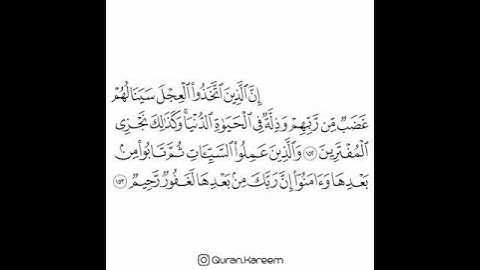 إِنَّ ٱلَّذِينَ ٱتَّخَذُوا۟ ٱلْعِجْلَ سَيَنَالُهُمْ
غَضَبٌ مِّن رَّبِّهِمْ وَذِلَّةٌ فِى ٱلْحَيَوٰةِ ٱلدُّنْيَا ۚ وَكَذَٰلِكَ نَجْزِى
ٱلْمُفْتَرِينَ ١٥٢ وَٱلَّذِينَ عَمِلُوا۟ ٱلسَّيِّـَٔاتِ ثُمَّ تَابُوا۟ مِنۢ
بَعْدِهَا وَءَامَنُوٓا۟ إِنَّ رَبَّكَ مِنۢ بَعْدِهَا لَغَفُورٌ رَّحِيمٌ ١٥٣
Quran.Kareem